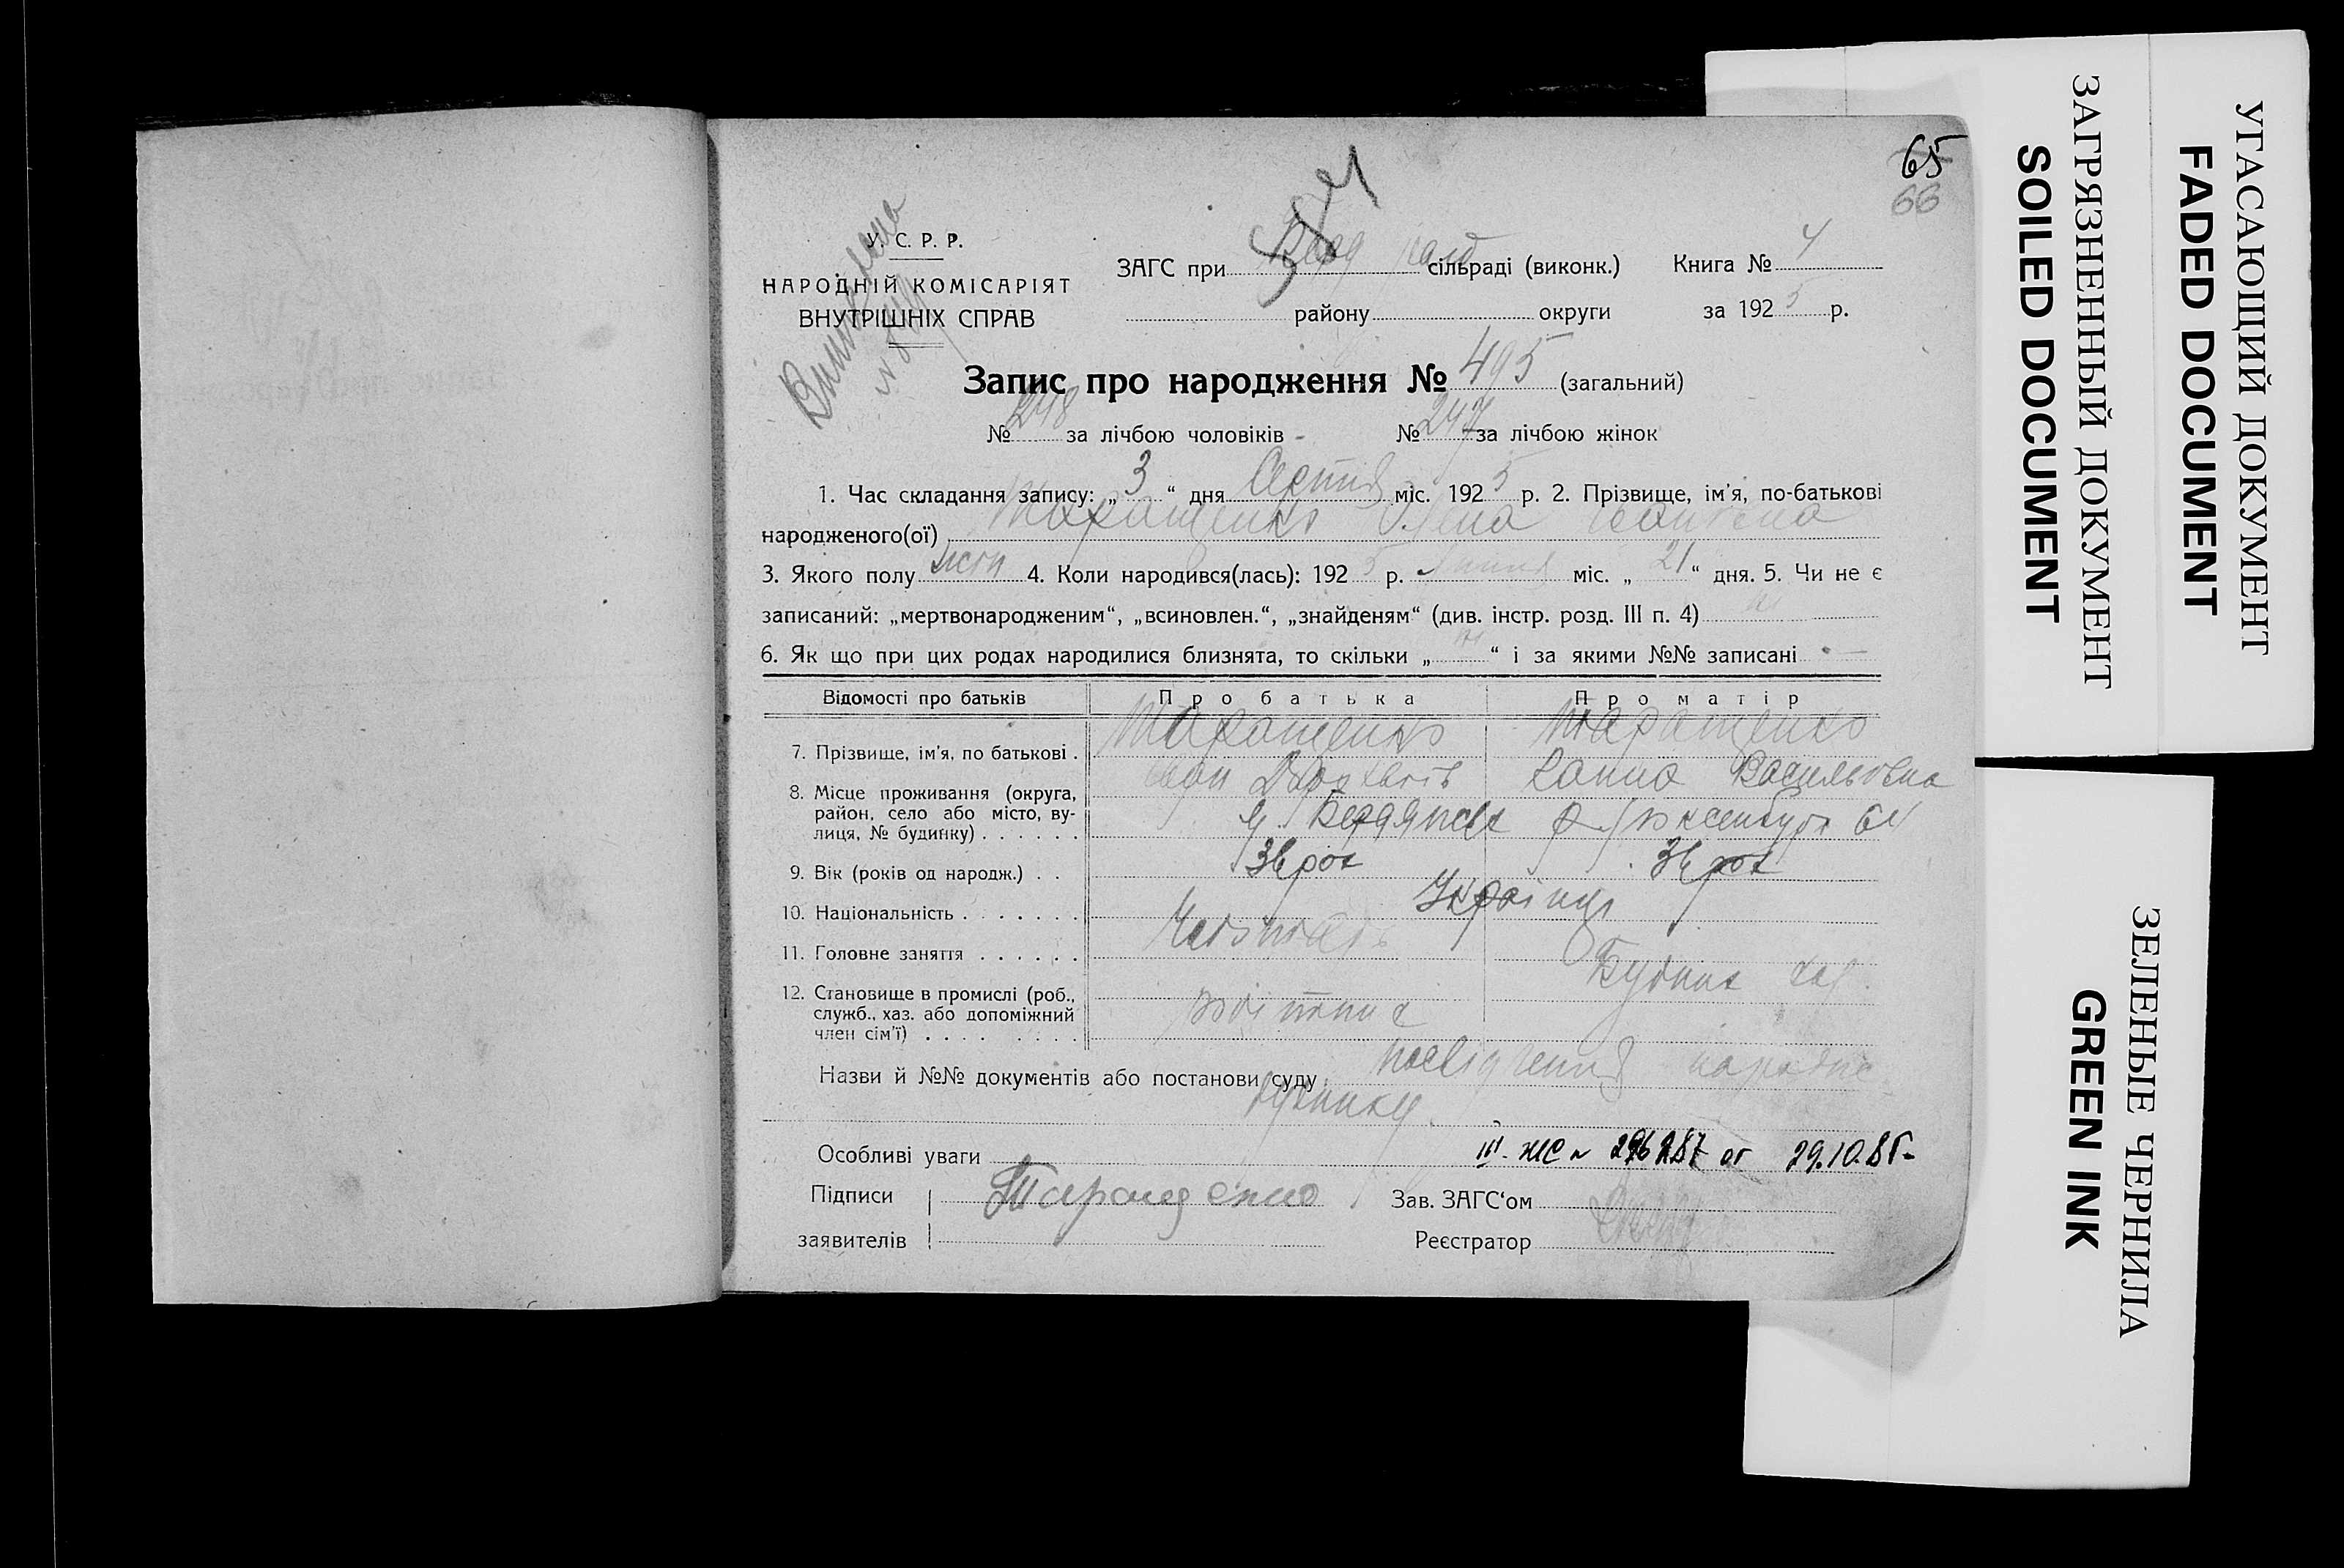 65
66
У. С. Р. Р.
НАРОДНІЙ КОМІСАРІЯТ
ВНУТРІШНІХ СПРАВ
ЗАГС при сільраді (виконк.)
району округи
Книга № 4
за 1925 р.
Запис про народження № 495 (загальний)
№ 248 за лічбою чоловіків - № 247 за лічбою жінок
1. Час складання запису: „3“ дня Серпня міс. 1925 р. 2. Прізвище, ім'я, по-батькові
народженого(ої) Таращенко Олена Іванівна
3. Якого полу жіночи 4. Коли народився(лась): 1925 р. Липня міс. „21“ дня. 5. Чи не є
записаний: „мертвонародженим“, „всиновлен.“, „знайденям“ (див. інстр. розд. III п. 4) ні
6. Як що при цих родах народилися близнята, то скільки „ні“ і за якими №№ записані —
Відомості про батьків Про батька Про матір
7. Прізвище, ім'я, по батькові . Таращенко Таращенко
Іван Ганна Васильовна
8. Місце проживання (округа,
район, село або місто, ву-
лиця, № будинку) . . . . . . м. Бердянськ Р. Люксембург 64
9. Вік (років од народж.) . . 36 рок 36 рок
10. Національність . . . . . . . Українці
11. Головне заняття . . . . . .
Будник хаз.
12. Становище в промислі (роб.,
служб., хаз. або допоміжний
член сім'ї) . . . . . . . .
робітник
Назви й №№ документів або постанови суду посвідчення народн
будинку.
Особливі уваги III-ЖС № 296287 от 29.10.85г.
Підписи Таращенко Зав. ЗАГС‘ом
заявителів Реєстратор
ЗАГРЯЗНЕННЫЙ ДОКУМЕНТ
SOILED DOCUMENT
УГАСАЮЩИЙ ДОКУМЕНТ
FADED DOCUMENT
ЗЕЛЕНЫЕ ЧЕРНИЛА
GREEN INK